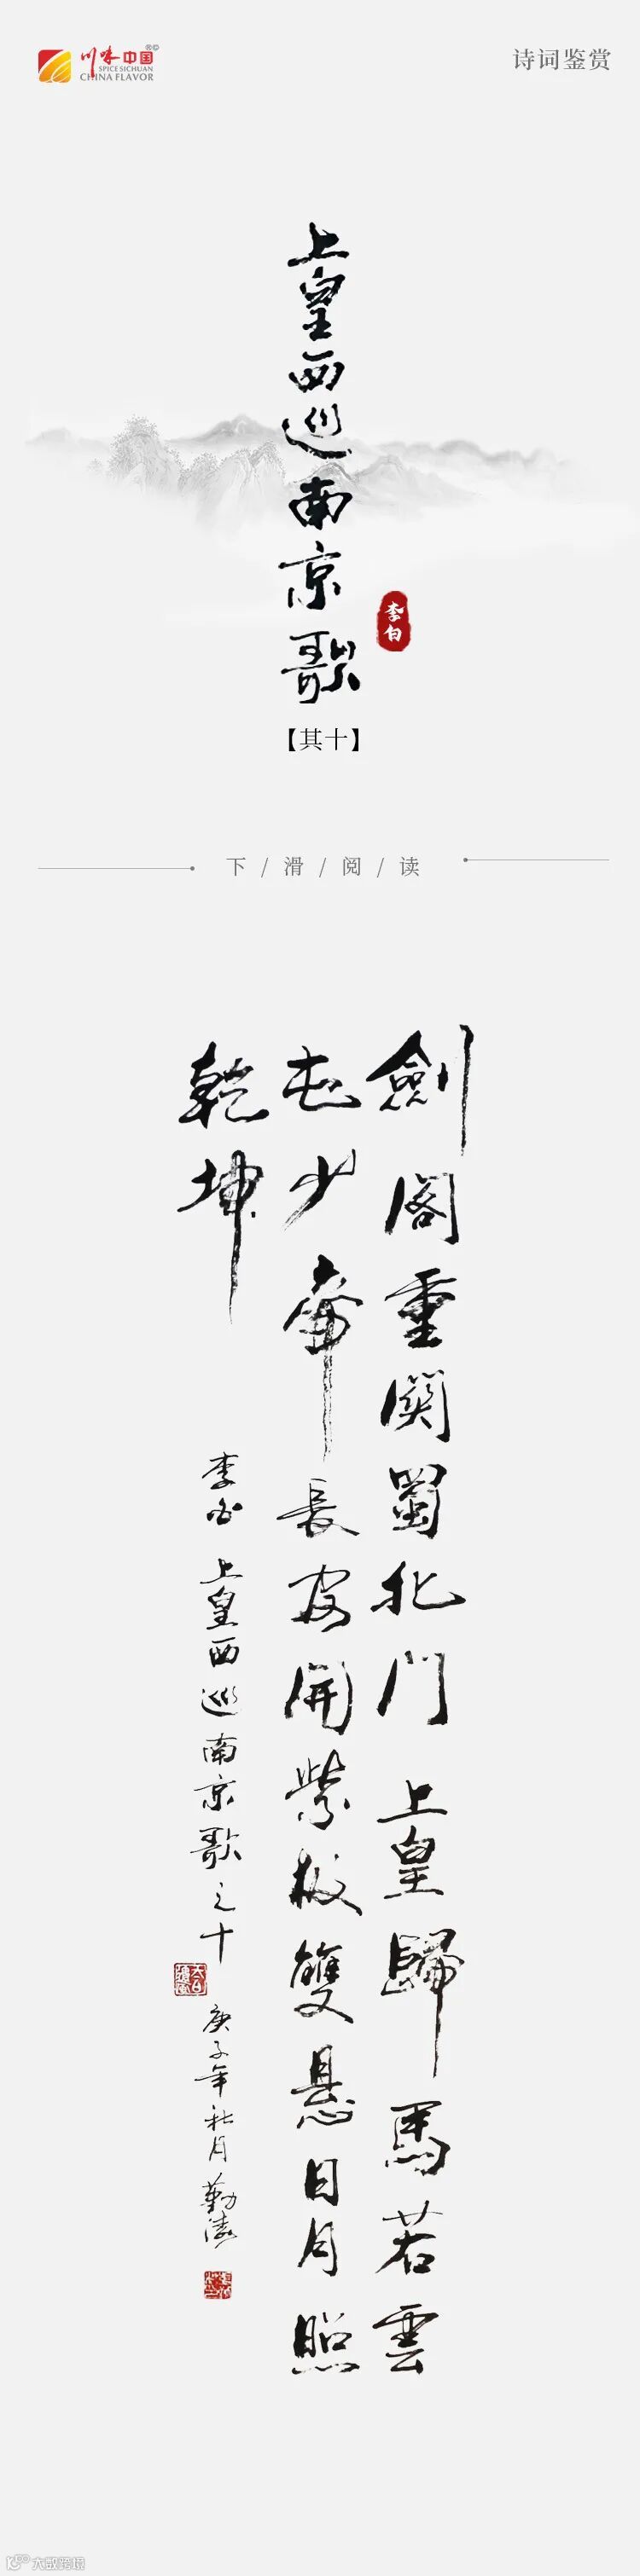 川味中国®©
SPICE SICHUAN
CHINA FLAVOR
诗词鉴赏
上皇西巡南京歌
李白
【其十】
下/滑/阅/读
劍閣重關蜀北門 上皇歸馬若雲
屯少帝長安開紫極雙懸日月照
乾坤
李白 上皇西巡南京歌之十 庚子年秋月
大数跨境